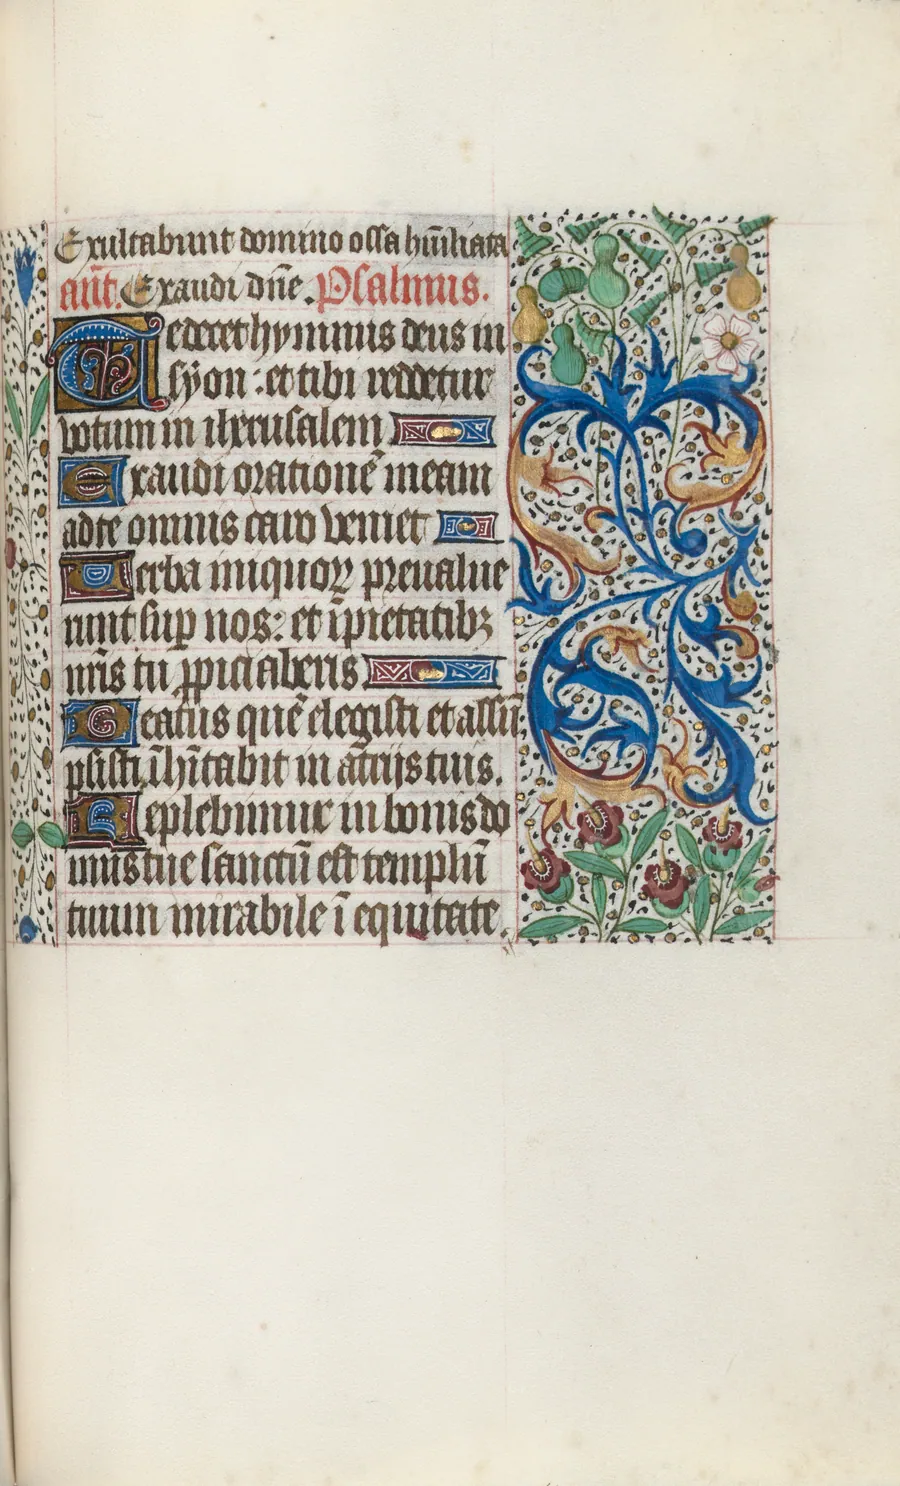 Exultabunt domino ossa hūiliata
añt. Exaudi dñe. Psalmus.
Te decet hymnus deus in
syon : et tibi reddetur
votum in iherusalem
Exaudi orationē meam
ad te omnis caro veniet
Verba iniquoꝝ preualue
runt sup nos : et īpietatibꝫ
nr̄is tu ppiciaberis
Beatus quē elegisti et assū
psisti īhītabit in atrijs tuis.
Replebimur in bonis do
mus tue sanctū est templū
tuum mirabile ī equitate.